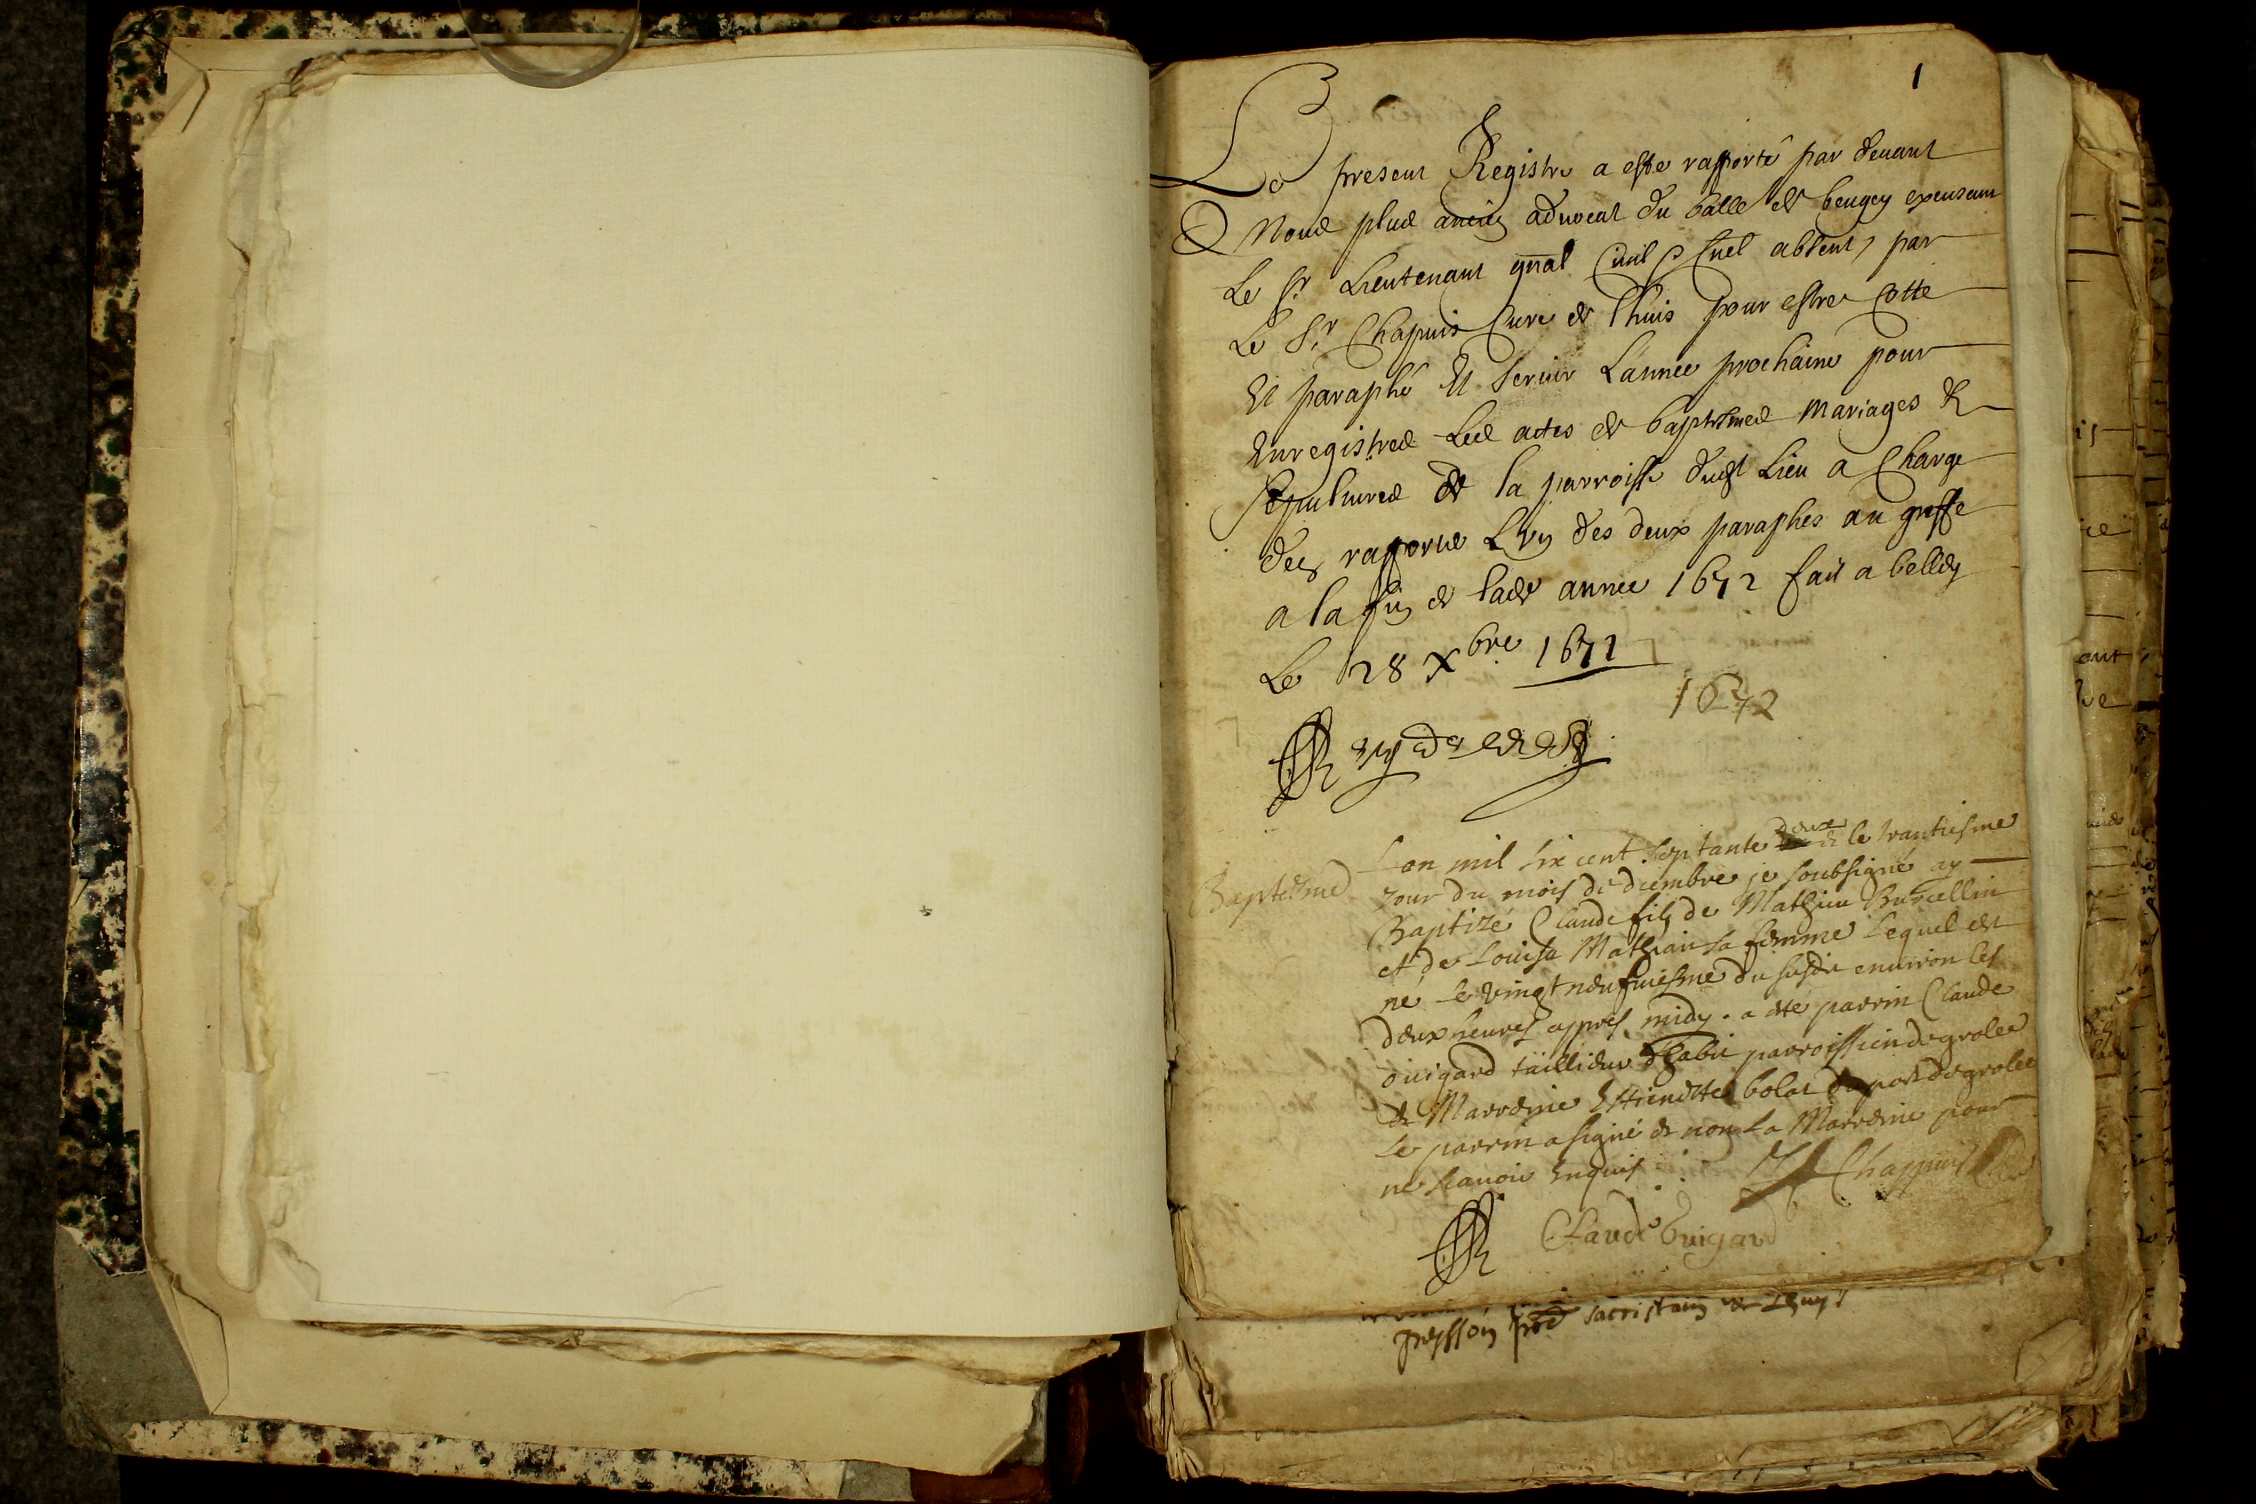 1
Le present Registre a este rapporté par deuant
Nous plus ancien aduocat du balle de beugey expensant
Le Sr Lieutenant gnal Ciuil absent, par
Le Sr Chapuis Cure de Lhuis pour estre Cotte
Et paraphé Et seruir Lannee prochaine pour
Enregistrer Les actes de baptesmes Mariages &
sepultures de la parroisse dudt Lieu a Charge
den rapporter Lvn des deux paraphes au greffe
a la fin de lade annee 1672 fait a belley
Le 28 Xbre 1671
1672
Baptesme
Lan mil six cent septante deux & le trantiesme
Jour du mois de decembre je soubsigné ay
Baptizé Claude filz de Mathieu
et de Louise Mathian sa femme Lequel est
né le vingt neufuiesme du susdit enuiron les
deux heures appres midy. a esté parrin Claude
Guigard taillieur parroissien de grolee
& Marreine Estiendette bolat du port de grolee
Le parrin a signé & non La Marreine pour
ne scauoir Enquis
Chappuis
Claude Guigard
sacristain de Lhuys